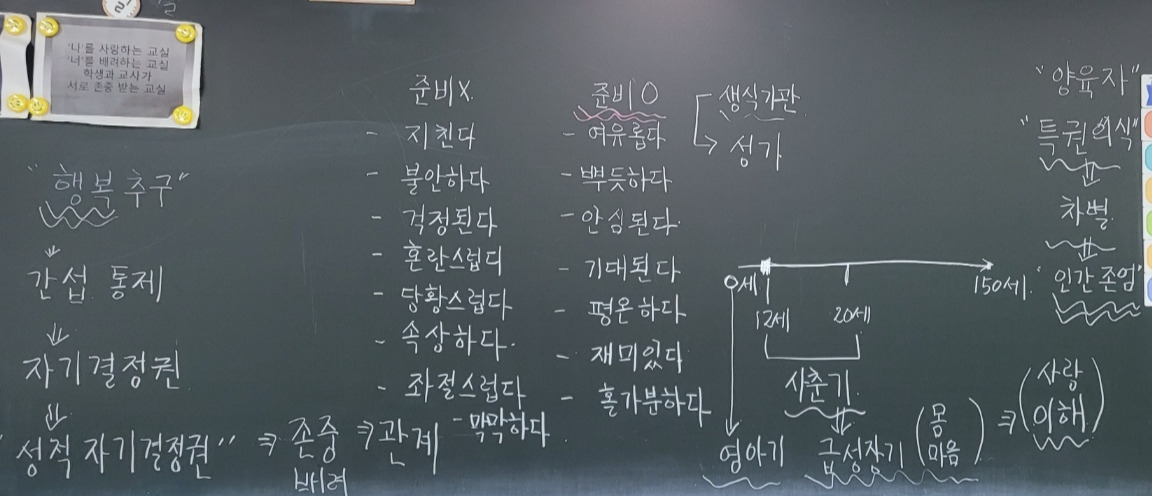 '나'를 사랑하는 교실
'너'를 배려하는 교실
학생과 교사가
서로 존중 받는 교실
"행복추구"
⇓
간섭. 통제
⇓
자기결정권
⇓
"성적 자기결정권" ⇒ 존중 ⇒ 관계
배려
준비X.
- 지친다
- 불안하다
- 걱정된다
- 혼란스럽다
- 당황스럽다
- 속상하다.
- 좌절스럽다
- 막막하다.
준비O
- 여유롭다
- 뿌듯하다
- 안심된다.
- 기대된다
- 평온하다
- 재미있다
- 홀가분하다
생식기관
→ 성기
0세
12세
20세
150세.
사춘기.
⇓
영아기
급성장기 (몸 마음) ⇒ (사랑 이해)
"양육자"
"특권의식"
⇓
차별.
⇓
"인간존엄"